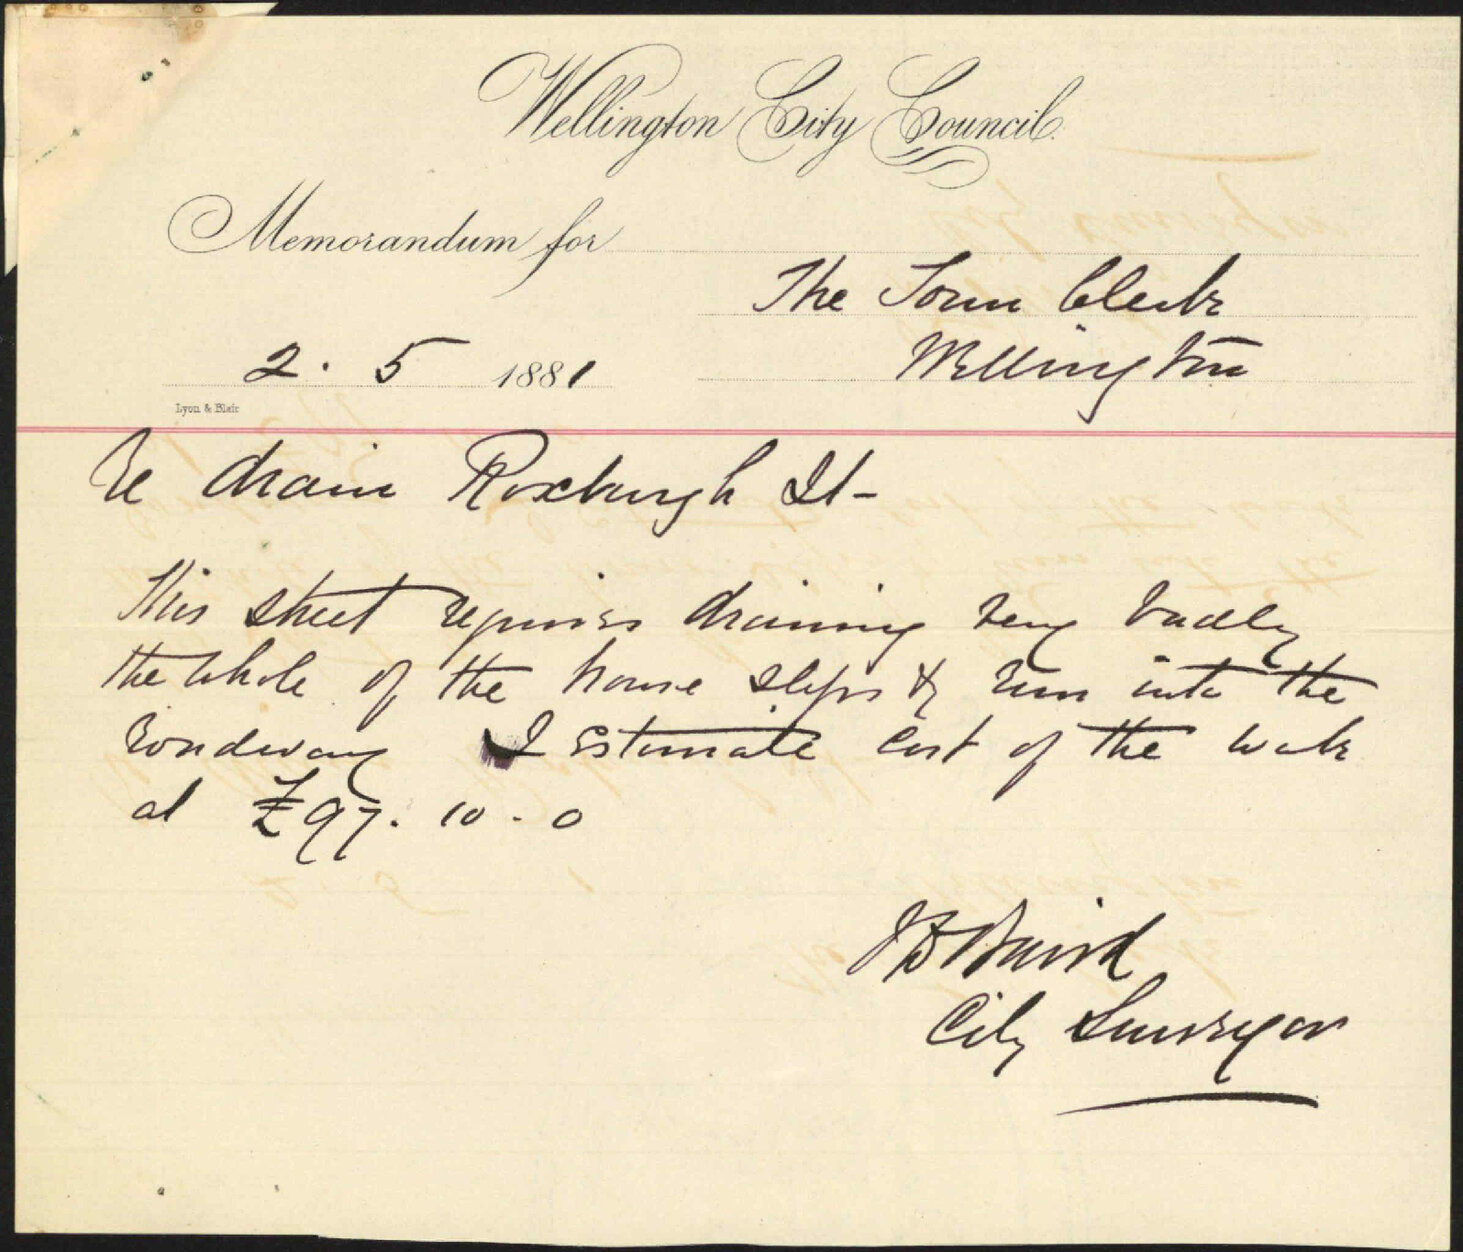 Wellington City Council.
Memorandum for
The Town Clerk
Wellington
2. 5 1881
Lyon & Blair
Re drain Roxburgh St-
This street requires draining very badly
the whole of the house slops &c run into the
roadway I Estimate Cost of the work
at £97. 10 . 0
J D Baird
City Surveyor